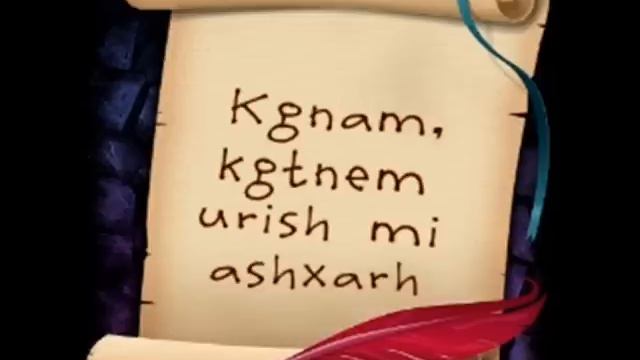 Kgnam,
kgtnem
urish mi
ashxarh